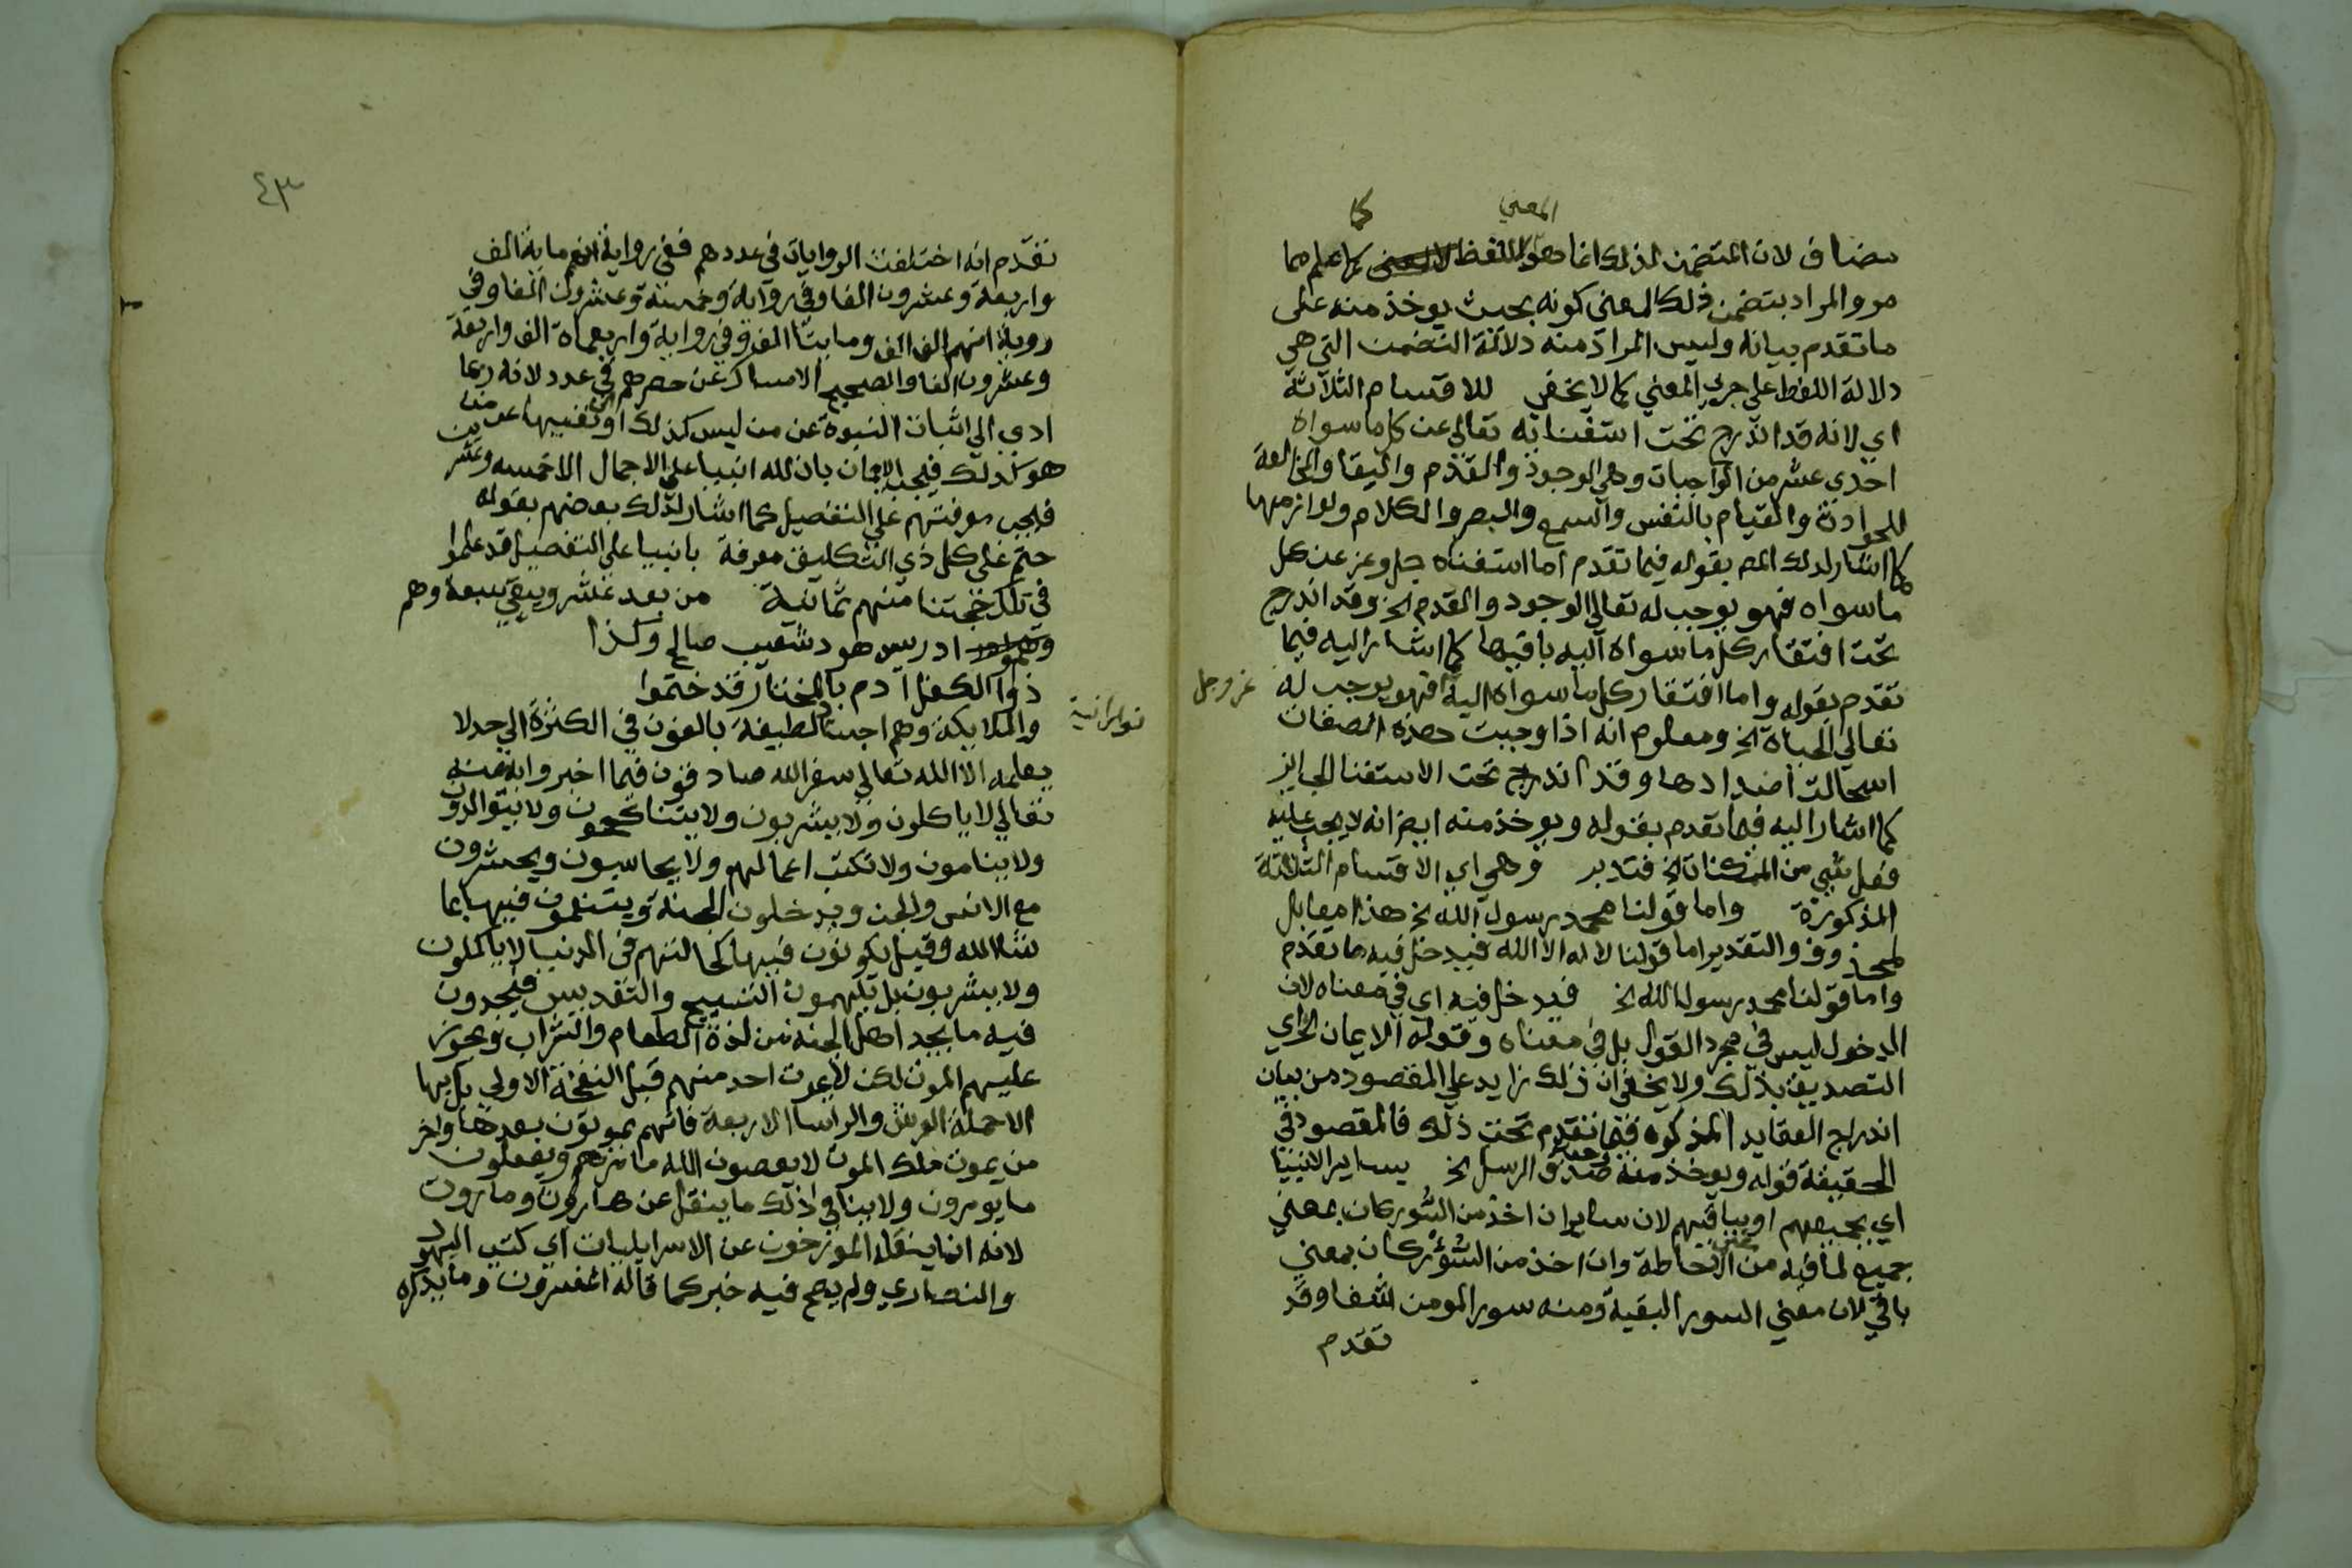 المعني كما
مضاف لان المتضمن لذلك انما هو اللفظ لا المعنى كما علم مما
مر والمراد بتضمن ذلك المعنى كونه بحيث يوخذ منه على
ما تقدم بيانه وليس المراد منه دلالة التضمن التي هي
دلالة اللفظ على جزي المعني كما لا يخفى للاقسام الثلاثة
اي لانه قد اندرج تحت استغنائه تعالي عن كل ما سواه
احدي عشر من الواجبات وهي الوجود والقدم والبقا والمخالفة
للحوادث والقيام بالنفس والسمع والبصر والكلام ولوازمها
كما اشار لذلك المص بقوله فيما تقدم اما استغناه جل وعز عن كل
ما سواه فهو يوجب له تعالي الوجود والقدم الخ وقد اندرج
تحت افتقار كل ما سواه اليه باقيها كما اشار اليه فيما
تقدم بقوله واما افتقار كل ما سواه اليه فهو يوجب له
عز وجل
تعالي الحياة الخ ومعلوم انه اذا وجبت هذه الصفات
استحالت اضدادها وقد اندرج تحت الاستغنا الجايز
كما اشار اليه فيما تقدم بقوله ويوخذ منه ايض انه لا يجب عليه
فعل شي من الممكنات الخ فتدبر وهي اي الاقسام الثلاثة
المذكورة واما قولنا محمد رسول الله الخ هذا مقابل
لمحذوف والتقدير اما قولنا لا اله الا الله فيدخل فيه ما تقدم
واما قولنا محمد رسول الله الخ فيدخل فيه اي في معناه لان
الدخول ليس في مجرد القول بل في معناه وقوله الايمان الخ اي
التصديق بذلك ولا يخفى ان ذلك زايد علي المقصود من بيان
اندراج العقايد المذكوره فيما تقدم تحت ذلك فالمقصود في
الحقيقة قوله ويوخذ منه صدق الرسل الخ بساير الانبيا
اي بجميعهم او بباقيهم لان ساير ان اخذ من السور كان بمعني
جميع لما فيه من الاحاطة وان اخذ من السؤر كان بمعني
باقي لان معني السور البقية ومنه سور المومن شفا وقد
تقدم
٤٣
تقدم انه اختلفت الروايات في عددهم ففي رواية انهم ماية الف
واربعة وعشرون الفا وفي رواية وخمسة وعشرون الفا وفي
روية انهم الف الف ومايتا الف وفي رواية واربعماة الف واربعة
وعشرون الفا والصحيح الامساك عن حصرهم في عدد لانه ربما
ادي الي اثبات النبوة عن من ليس كذلك او نفيها عن من
هو كذلك فيجب الايمان بان لله انبيا علي الاجمال الا خمسه وعشرين
فيجب معرفتهم علي التفصيل كما اشار لذلك بعضهم بقوله
حتم على كل ذي التكليف معرفة بانبيا على التفصيل قد علموا
في تلك حجتنا منهم ثمانية من بعد عشر ويبقي سبعة وهم
ادريس هود شعيب صالح وكذا
ذوا الكفل آدم بالمختار قد ختموا
والملايكة وهم اجسام لطيفة بالغون في الكثرة الي حد لا
نورانية
يعلمه الا الله تعالي سفر الله صادقون فيما اخبروا به عنه
تعالي لا ياكلون ولا يشربون ولا يتناكحون ولا يتوالدون
ولا ينامون ولا تكتب اعمالهم ولا يحاسبون ويحشرون
مع الانس والجن ويدخلون الجنة ويتنعمون فيها بما
شا الله وقيل يكونون فيها كحالتهم في الدنيا لا ياكلون
ولا يشربون بل يلهمون التسبيح والتقديس فيجدون
فيه ما يجد اهل الجنة من لذة الطعام والشراب ويجوز
عليهم الموت لكن لا يموت احد منهم قبل النفخة الاولي بل بها
الا حملة العرش والراسا الاربعة فانهم يموتون بعدها واخر
من يموت ملك الموت لا يعصون الله ما امرهم ويفعلون
ما يومرون ولا ينافي ذلك ما ينقل عن هاروت وماروت
لانه انما ينقله المورخون عن الاسرايليات اي كتب اليهود
والنصاري ولم يصح فيه خبر كما قاله المفسرون وما يذكره